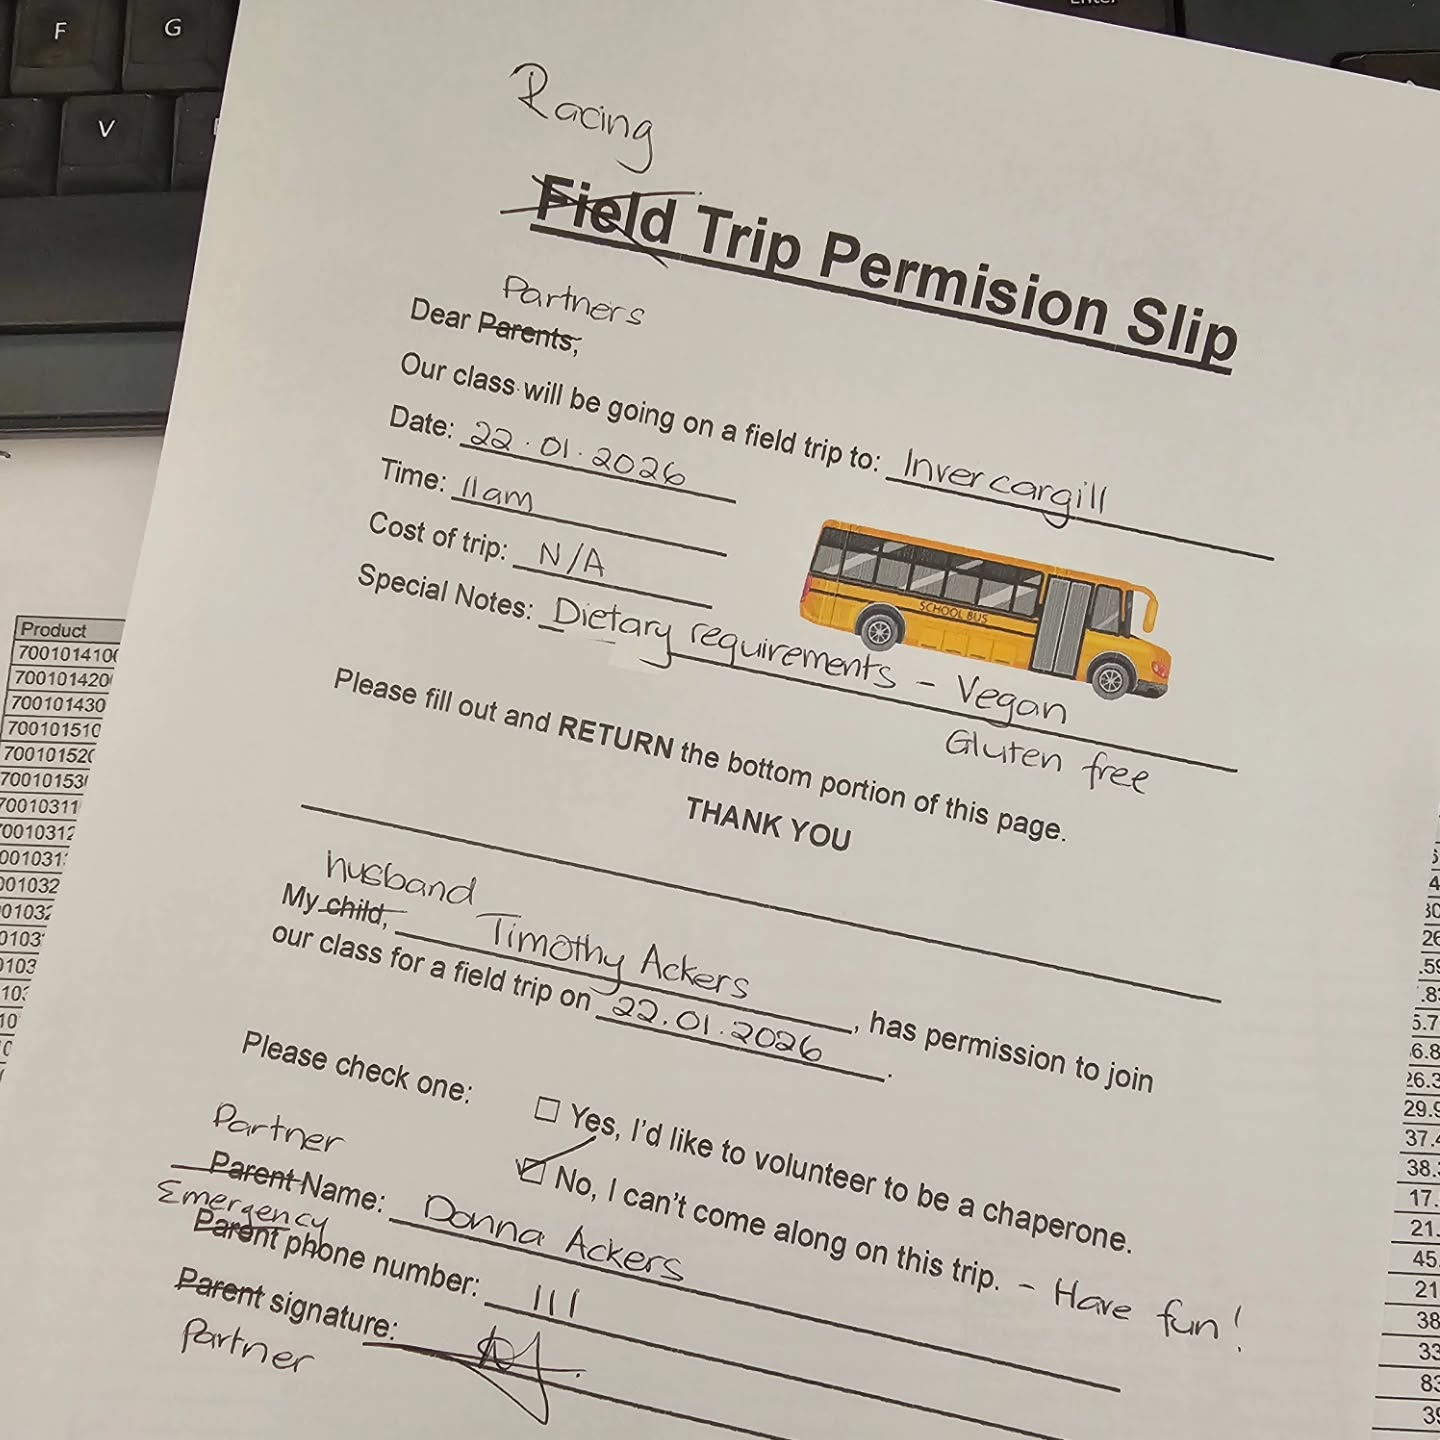 Enter
F G
V
Racing
Field Trip Permision Slip
Partners
Dear Parents,
Our class will be going on a field trip to: Invercargill
Date: 22.01.2026
Time: 11am
Cost of trip: N/A
SCHOOL BUS
Special Notes: Dietary requirements - Vegan
Gluten free
Please fill out and RETURN the bottom portion of this page.
THANK YOU
husband
My child, Timothy Ackers, has permission to join
our class for a field trip on 22.01.2026.
Please check one:
Yes, I'd like to volunteer to be a chaperone.
No, I can't come along on this trip. - Have fun!
Partner
Parent Name: Donna Ackers
Emergency
Parent phone number: 111
Parent signature:
Partner
Product
700101410
700101420
700101430
700101510
70010152
70010153
70010311
0010312
001031
001032
01032
0103
103
10
10
26
5.7
6.8
26.3
29.9
37.4
38.
17.
21.
45.
21
38
33
83
39